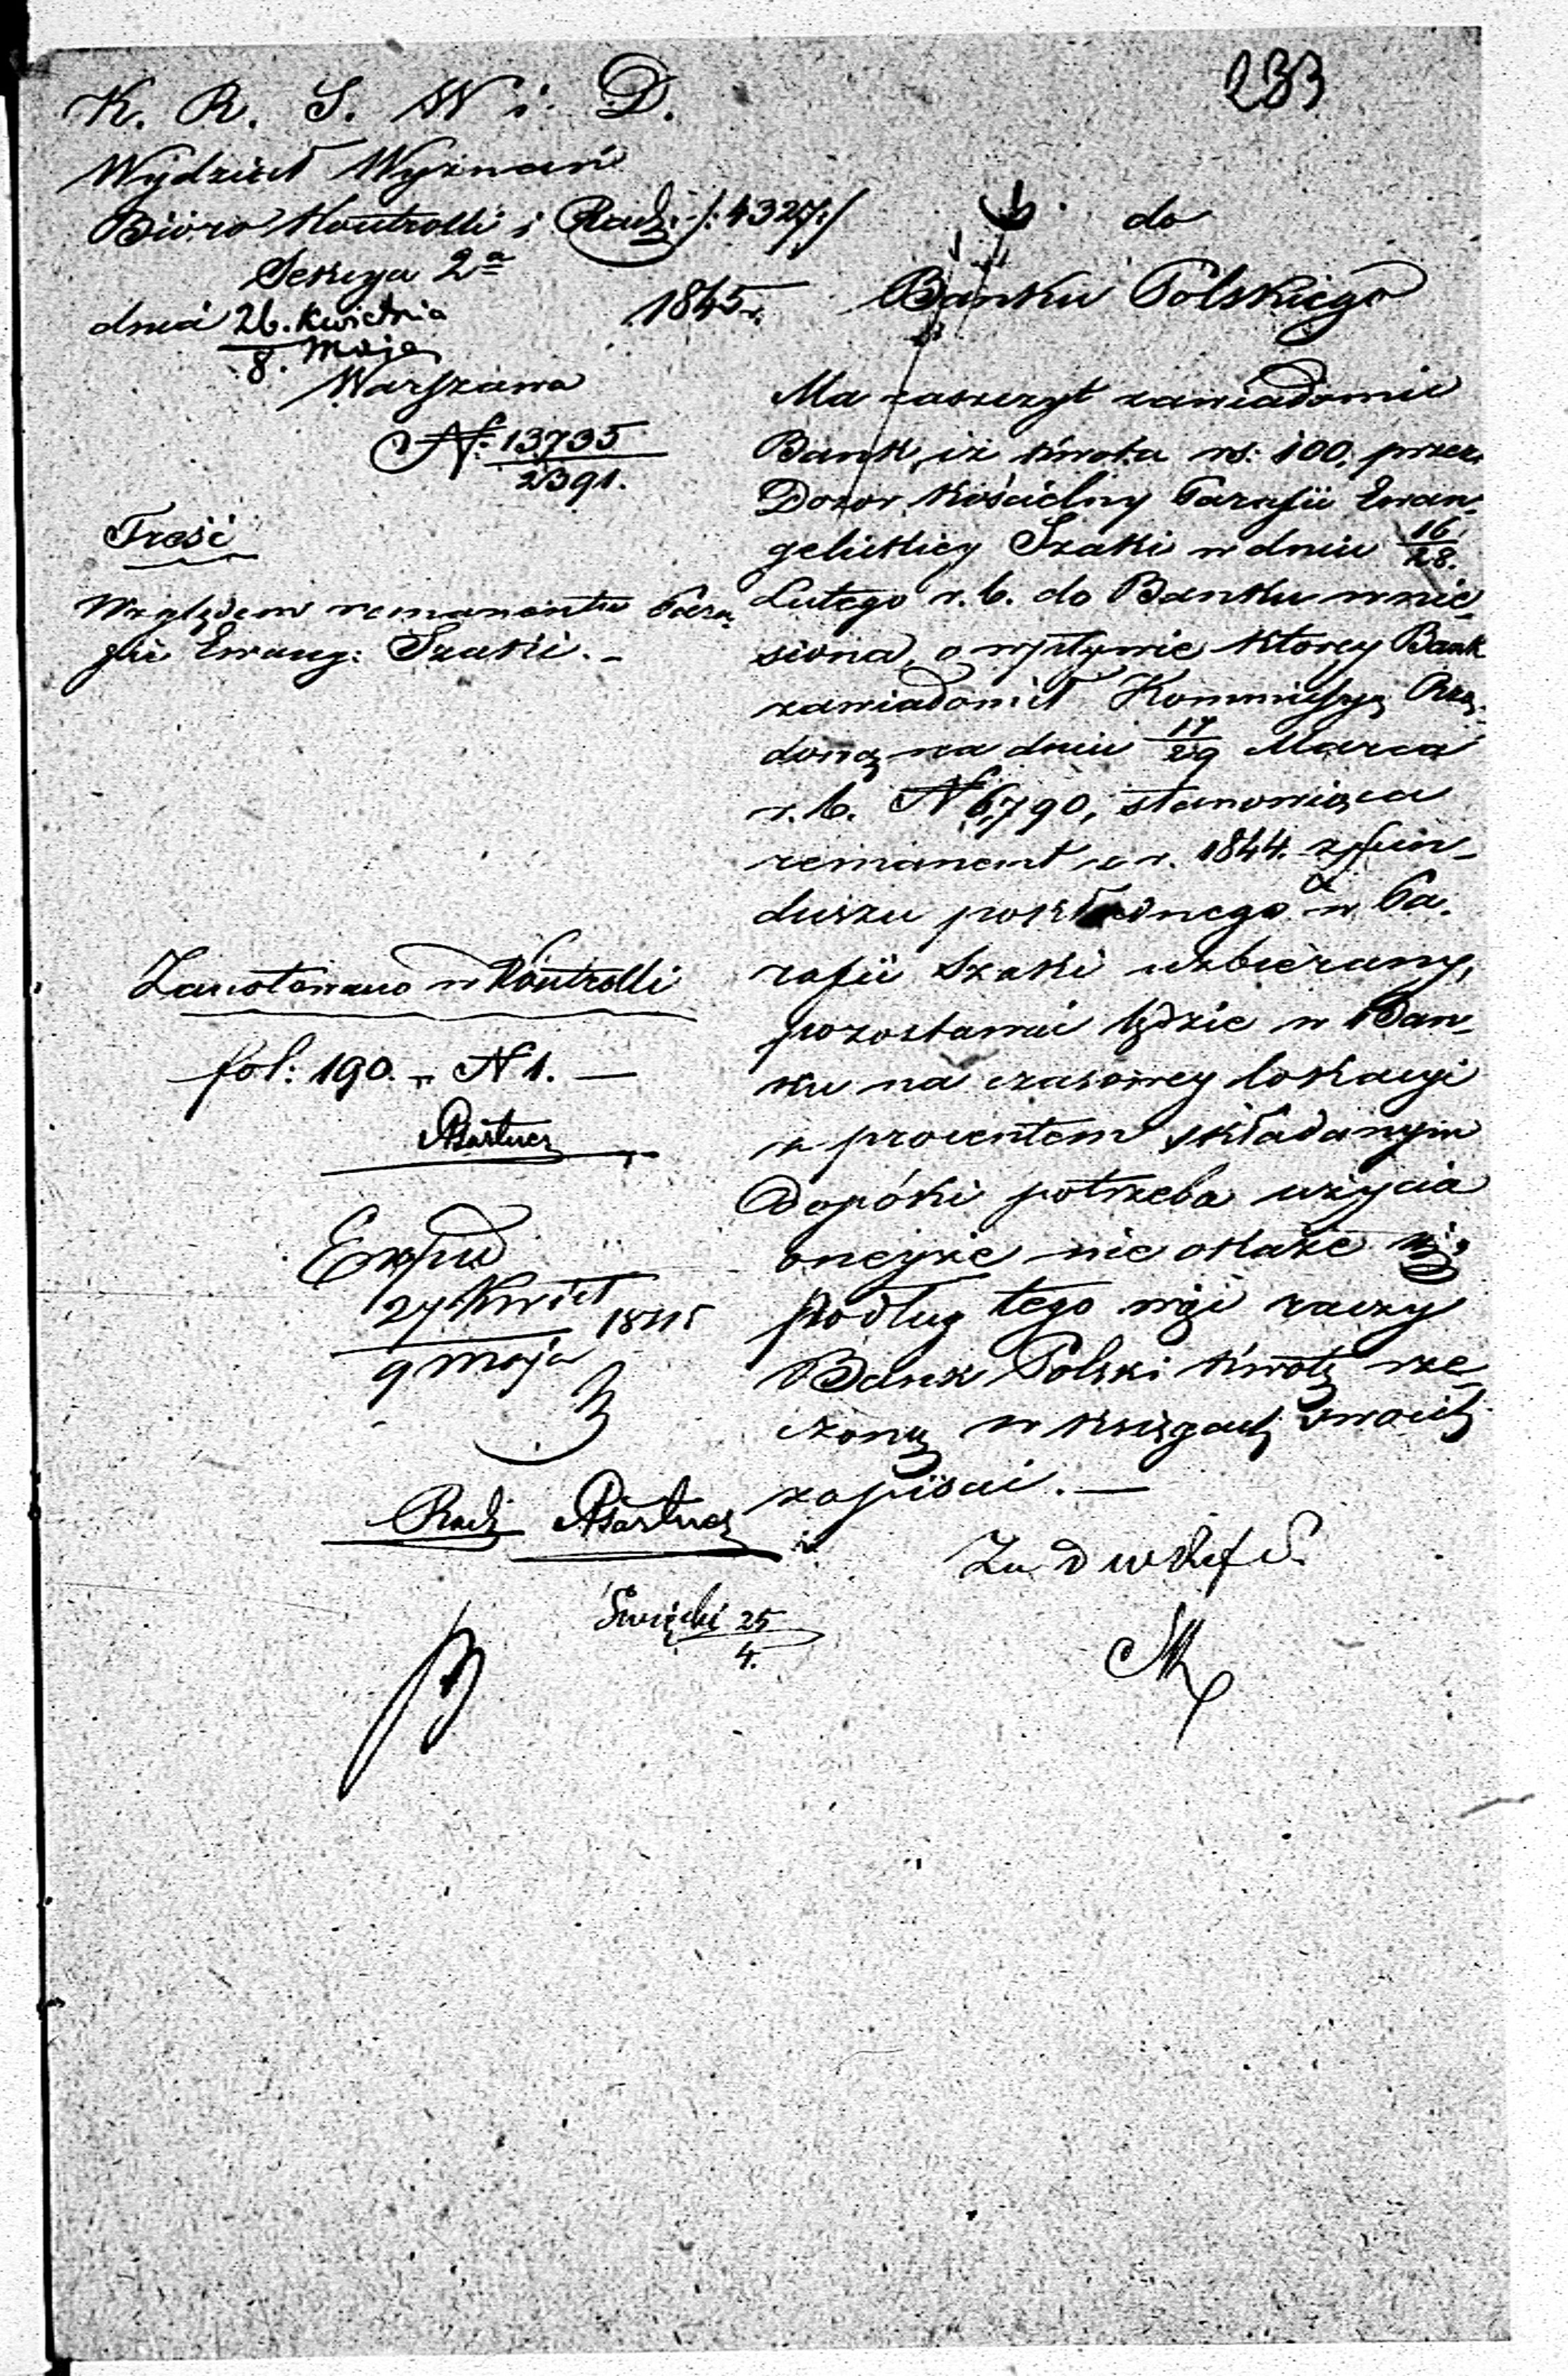 233
K. R. S. W i D.
Wydział Wyznań
Bióro Kontrolli i Rach: /:4327:/
Sekcya 2a
dnia 26. Kwietnia / 8. Maja 1845 r.
Warszawa
N: 13735 / 2391.
Treść
Względem remanentu Para-
fii Ewang: Szaki. –
Zanotowano w Kontrolli
fol: 190. – N 1. —
Exped
27 Kwiet / 9 Maja 1845
Rach
Święcki 25/4.
do
Banku Polskiego
Ma zaszczyt zawiadomić
Bank, iż kwota rs: 100. przez
Dozór Kościelny Parafii Ewan-
gelickiey Szaki w dniu 16/28.
Lutego r. b. do Banku wnie-
siona, o wpływie którey Bank
zawiadomił Kommissyą Rzą-
dową na dniu 17/29 Marca
r. b. N 6,790, stanowiąca
remanent z r. 1844. z fun-
duszu pokładnego w Pa-
rafii Szaki uzbierany,
pozostawać będzie w Ban-
ku na czasowey lokacyi
z procentem składanym
dopóki potrzeba użycia
oneyże nie okaże się
podług tego więc raczy
Bank Polski kwotę rze-
czoną w księgach swoich
zapisać. —